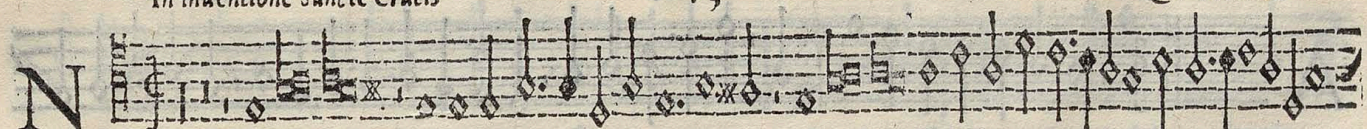 In inuentione sancte Crucis
N